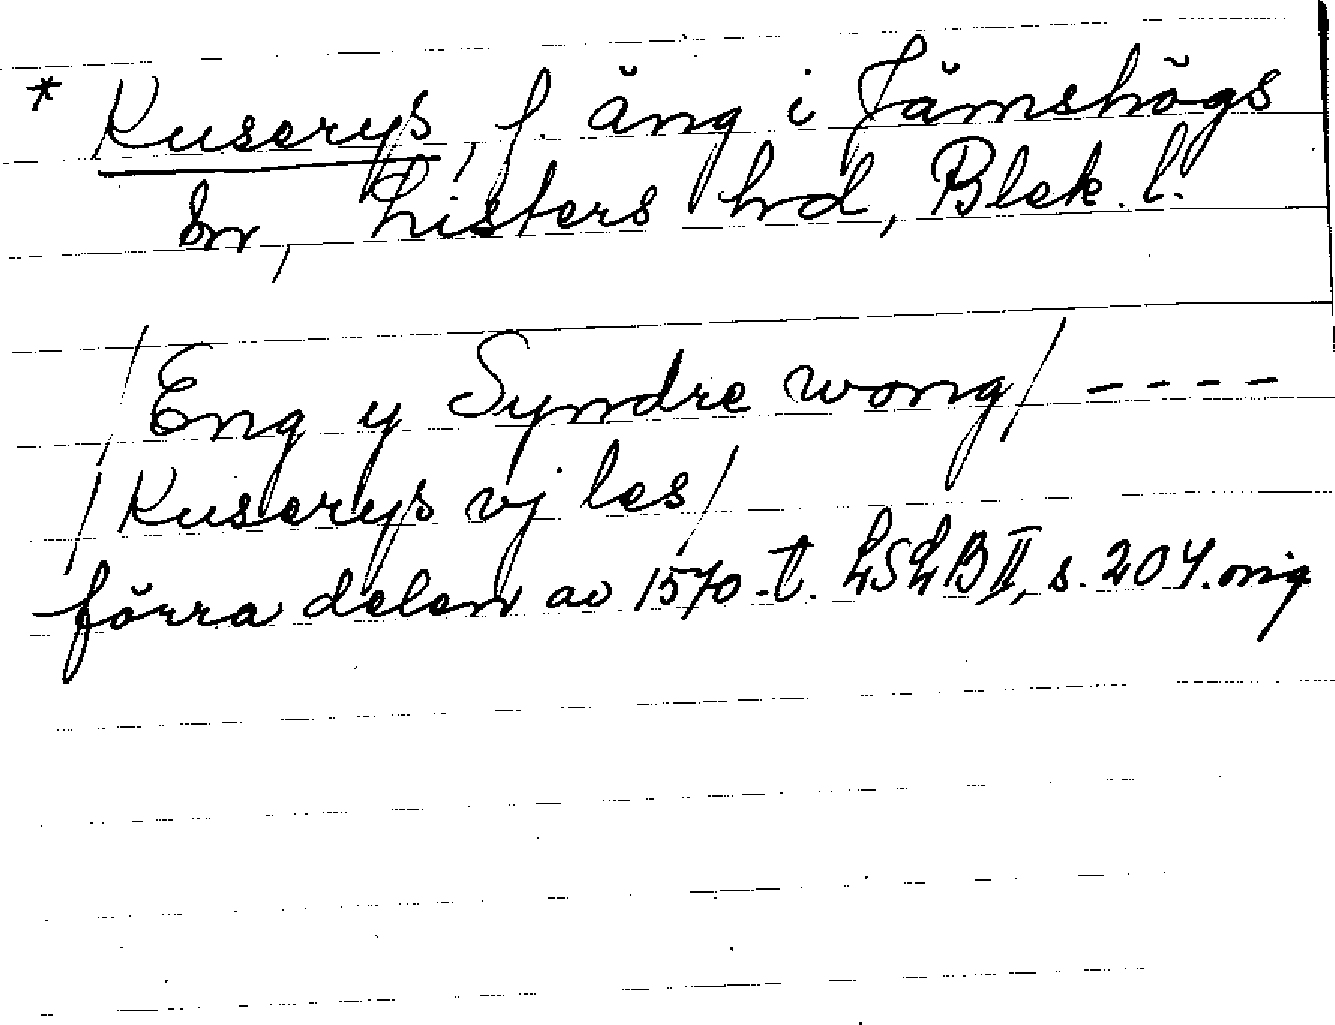 * Kuserys, f. äng i Jämshögs
sn, Listers hd, Blek. l.
/Eng y Syndre wong/ ----
/Kuserys vj les/
förra delen av 1570-t. LSLB II, s. 204. orig